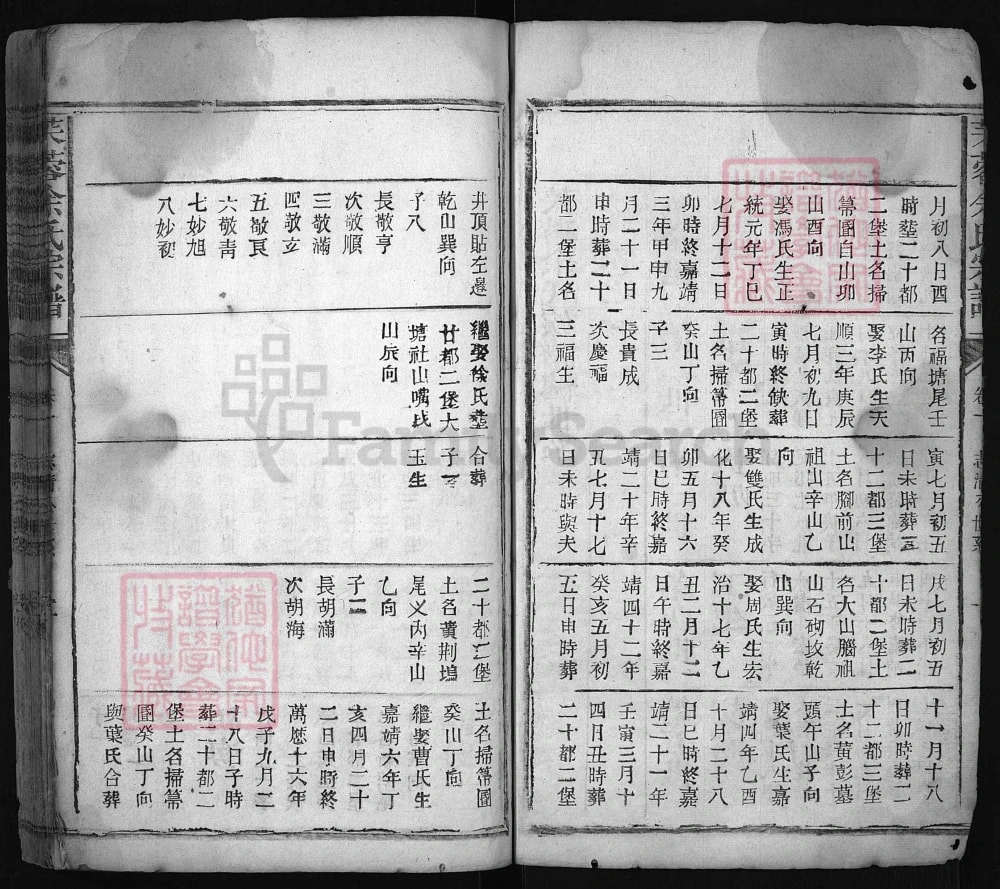 月初八日酉
時塟二十都
二堡土名掃
箒圕自山卯
山酉向
娶馮氏生正
統元年丁巳
七月十二日
卯時終嘉靖
三年甲申九
月二十一日
申時葬二十
都二堡土名
名福塘尾壬
山丙向
娶李氏生天
順三年庚辰
七月初九日
寅時終缺葬
二十都二堡
土名掃箒圕
癸山丁向
子三
長貴成
次慶福
三福生
寅七月初五
日未時葬三
十二都三堡
土名腳前山
祖山辛山乙
向
娶雙氏生成
化十八年癸
卯五月十六
日巳時終嘉
靖二十年辛
丑七月十七
日未時與夫
戌七月初五
日未時葬二
十都二堡土
名大山腦祖
山石砌坟乾
山巽向
娶周氏生宏
治十七年乙
丑二月十二
日午時終嘉
靖四十二年
癸亥五月初
五日申時葬
十一月十八
日卯時葬二
十二都三堡
土名黄彭墓
頭午山子向
娶葉氏生嘉
靖四年乙酉
十月二十八
日巳時終嘉
靖二十一年
壬寅三月十
四日丑時葬
二十都二堡
井頂貼左邊
乾山巽向
子八
長敬亨
次敬順
三敬滿
四敬玄
五敬良
六敬青
七妙旭
八妙
繼娶徐氏塟
廿都二堡大
塘社山嘴戌
山辰向
合葬
子
玉生
二十都二堡
土名黃荆塢
尾义内辛山
乙向
子二
長胡滿
次胡海
土名掃箒圕
癸山丁向
繼娶曹氏生
嘉靖六年丁
亥四月二十
二日申時終
萬厯十六年
戊子九月二
十八日子時
葬二十都二
堡土名掃箒
圕癸山丁向
與葉氏合葬
FamilySearch